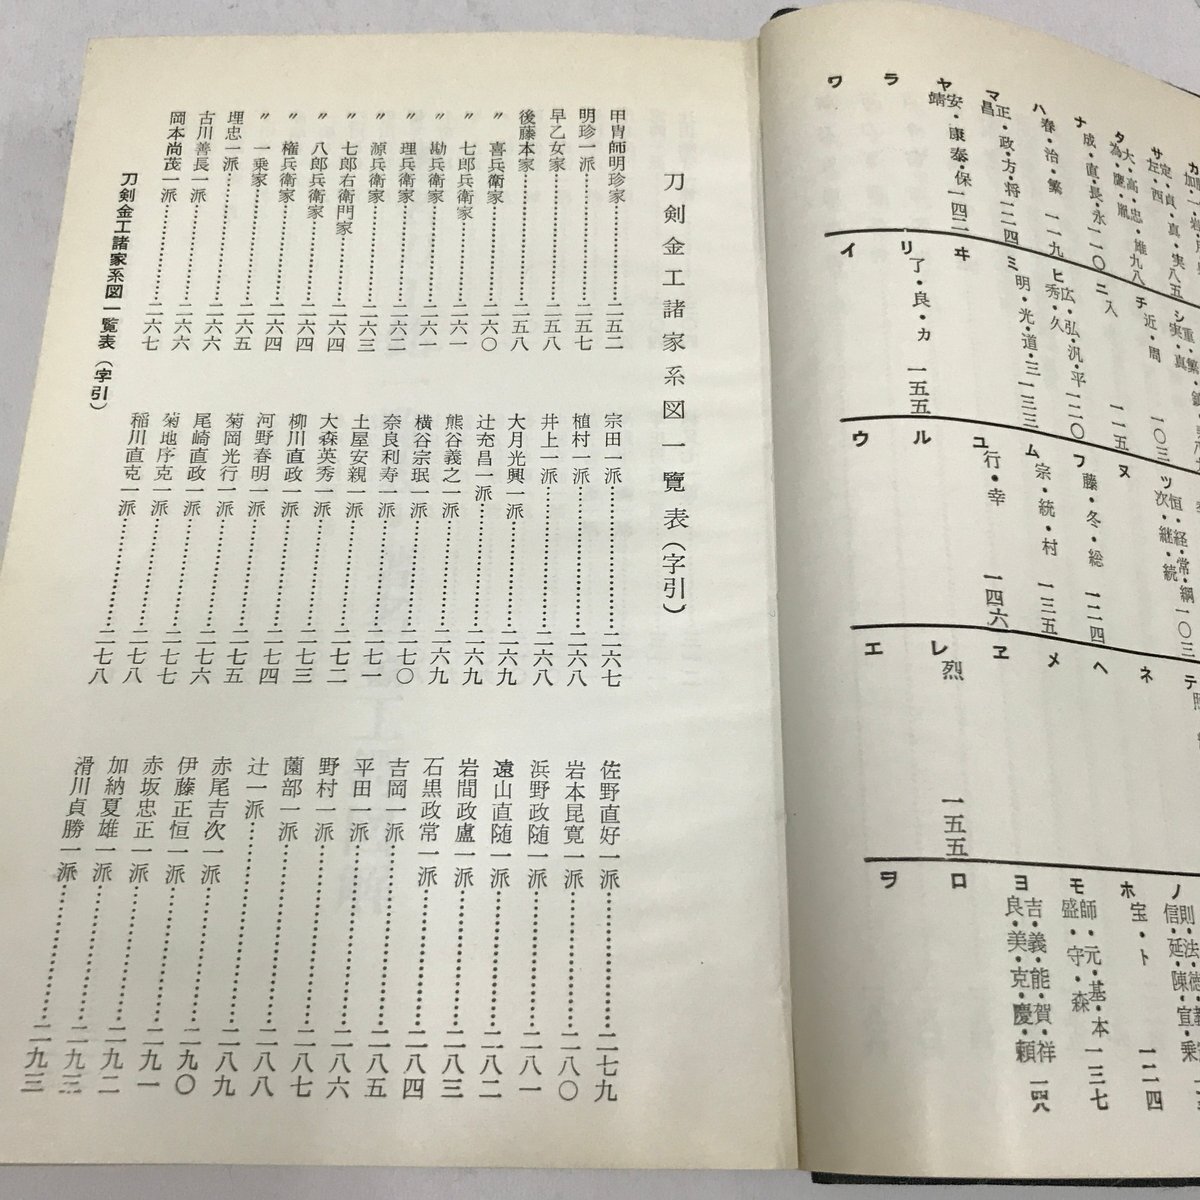 サ 定・貞・真・実 八五
左・西
タ 大・高・忠・雄 九八
為・鷹・胤
ナ 成・直・長・永 一一〇
ハ 春・治・繁 一一九
マ 正・政・方・将 一二四
昌
ヤ 安・康・泰・保 一四二
靖
ラ
ワ
シ 重・繁
実・真
チ 近・周 一〇三
ニ 入 一一五
ヒ 広・弘・汎・平 一二〇
秀・久
ミ 明・光・道・三 一三三
ヰ
リ 了・良・力 一五五
イ
ツ 恒・経・常・綱 一〇三
次・継・続
ヌ
フ 藤・冬・総 一二四
ム 宗・統・村 一三五
ユ 行・幸 一四六
ル
ウ
テ 照
ネ
ヘ
メ
ヱ
レ 烈 一五五
エ
ノ 則・法・徳
信・延・陳・宣・乗
ホ 宝・ト 一二四
モ 師・元・基・本 一三七
盛・守・森
ヨ 吉・義・能・賀・祥 一四八
良・美・克・慶・頼
ロ
ヲ
刀剣金工諸家系図一覽表(字引)
甲冑師明珍家……二五二
明珍一派……二五七
早乙女家……二五八
後藤本家……二五八
〃 喜兵衛家……二六〇
〃 七郎兵衛家……二六一
〃 勘兵衛家……二六一
〃 理兵衛家……二六二
〃 源兵衛家……二六三
〃 七郎右衛門家……二六四
〃 八郎兵衛家……二六四
〃 権兵衛家……二六四
〃 一乗家……二六五
埋忠一派……二六六
古川善長一派……二六六
岡本尚茂一派……二六七
宗田一派……二六七
植村一派……二六八
井上一派……二六八
大月光興一派……二六九
辻充昌一派……二六九
熊谷義之一派……二六九
横谷宗珉一派……二七〇
奈良利寿一派……二七一
土屋安親一派……二七二
大森英秀一派……二七三
柳川直政一派……二七四
河野春明一派……二七五
菊岡光行一派……二七六
尾崎直政一派……二七七
菊地序克一派……二七八
稲川直克一派……二七八
佐野直好一派……二七九
岩本昆寛一派……二八〇
浜野政随一派……二八一
遠山直随一派……二八二
岩間政盧一派……二八三
石黒政常一派……二八四
吉岡一派……二八五
平田一派……二八六
野村一派……二八七
薗部一派……二八八
辻一派……二八九
赤尾吉次一派……二九〇
伊藤正恒一派……二九一
赤坂忠正一派……二九二
加納夏雄一派……二九三
滑川貞勝一派……二九三
刀剣金工諸家系図一覧表(字引)